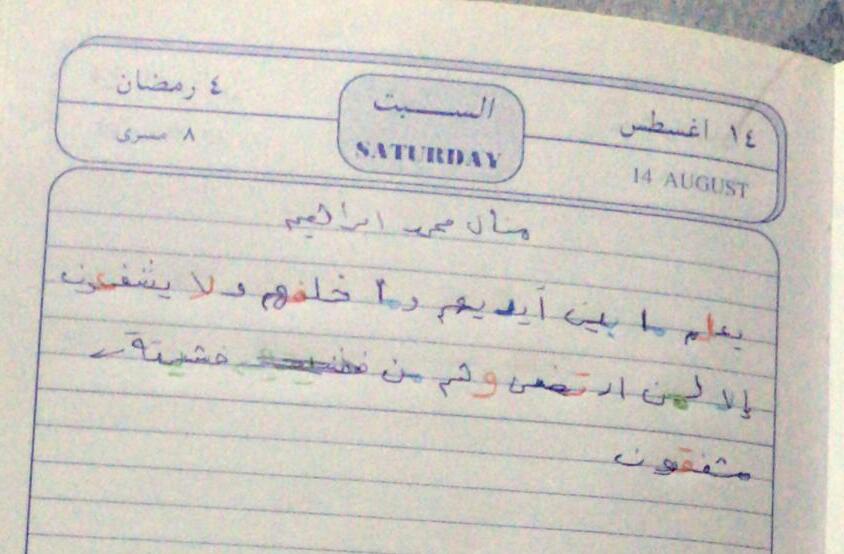 ٤ رمضان
٨ مسرى
السبت
SATURDAY
١٤ اغسطس
14 AUGUST
منال محمد ابراهيم
يعلم ما بين أيديهم وما خلفهم ولا يشفعون
إلا لمن ارتضى وهم من خشيته
مشفقون